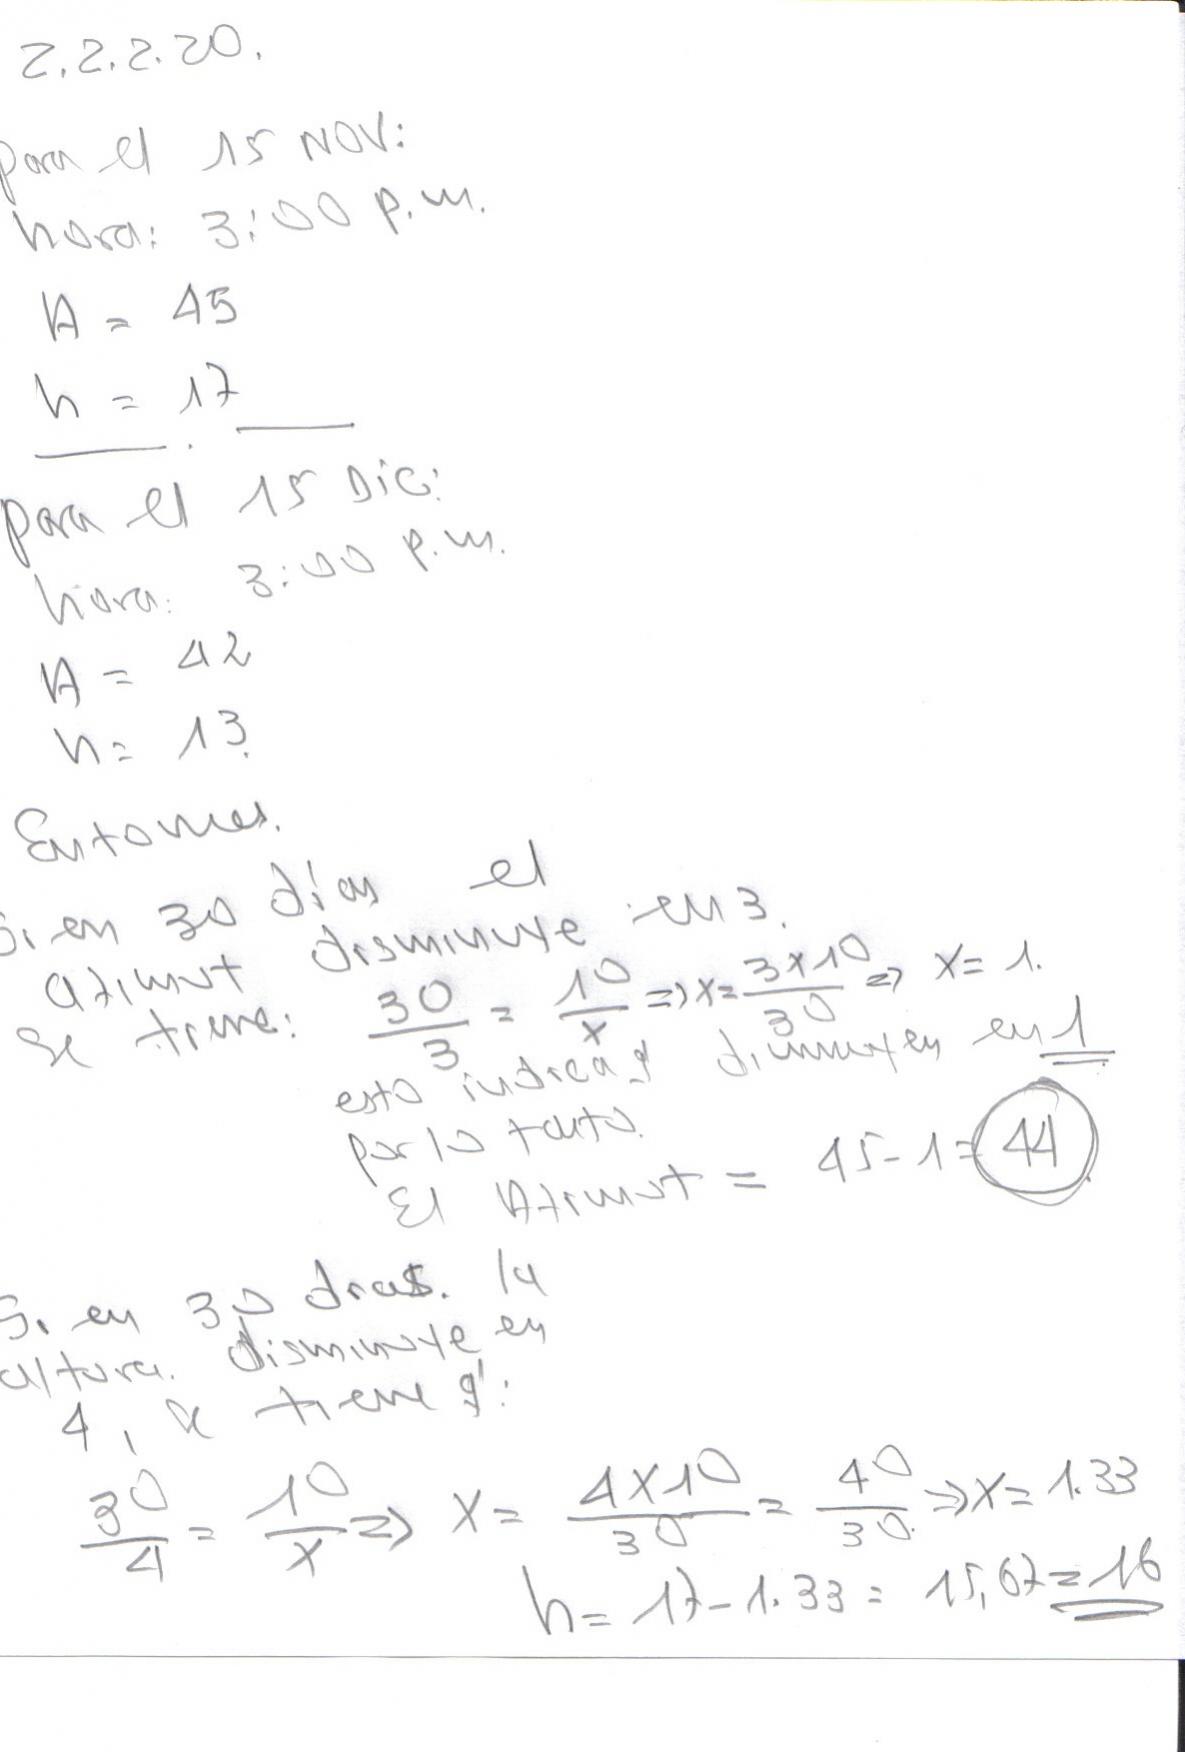 2.2.2.20.
para el 15 NOV:
hora: 3:00 p.m.
A = 45
h = 17
para el 15 Dic:
hora: 3:00 p.m.
A = 42
h = 13.
Entonces.
Si en 30 días el
azimut disminuye en 3.
Se tiene: 30/3 = 10/x => x = 3x10/30 => x = 1.
esto indica q' disminuyen en 1
por lo tanto.
El Azimut = 45 - 1 = 44
Si en 30 dias. la
altura. disminuye en
4, se tiene q':
30/4 = 10/x => x = 4x10/30 = 40/30. => x = 1.33
h = 17 - 1.33 = 15,67 = 16